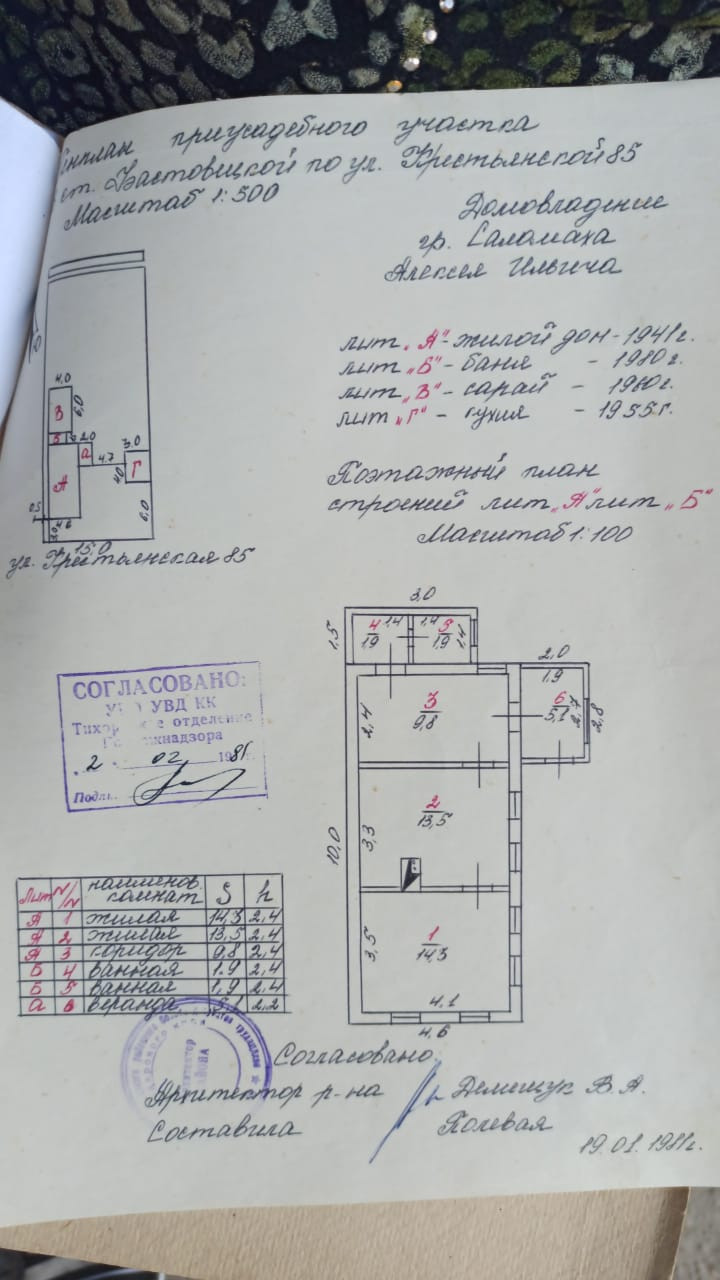 енплан приусадебного участка
ст. Бастовецкой по ул. Крестьянской 85
Масштаб 1:500
Домовладение
гр. Саломаха
Алексея Ильича
лит „А"-жилой дом-1941г.
лит „Б"-баня - 1980г.
лит „В"- сарай - 1960г.
лит „Г" - кухня - 1955г.
Поэтажный план
строений лит „А" лит „Б"
Масштаб 1:100
4,0
6,0
В
Б
2,0
а
4.7
3,0
4,0
Г
А
0,5
4.6
3,0
6,0
15,0
ул. Крестьянская 85
СОГЛАСОВАНО:
УВД КК
отделение
2 02 1981г.
3,0
1,5
4
1,9
1,4
1,4
5
1,9
1,4
2,0
1,9
3
9,8
2,4
6
5,1
2,7
2,8
2
13,5
3,3
10,0
1
14,3
3,5
4,1
4,6
Лит N/N наименов. комнат S h
А 1 жилая 14,3 2,4
А 2 жилая 13,5 2,4
А 3 коридор 9,8 2,4
Б 4 ванная 1.9 2,4
Б 5 ванная 1,9 2,4
а 6 веранда 5,1 2,2
Согласовано
Архитектор р-на Демещук В.А.
Составила Полевая
19.01.1981г.